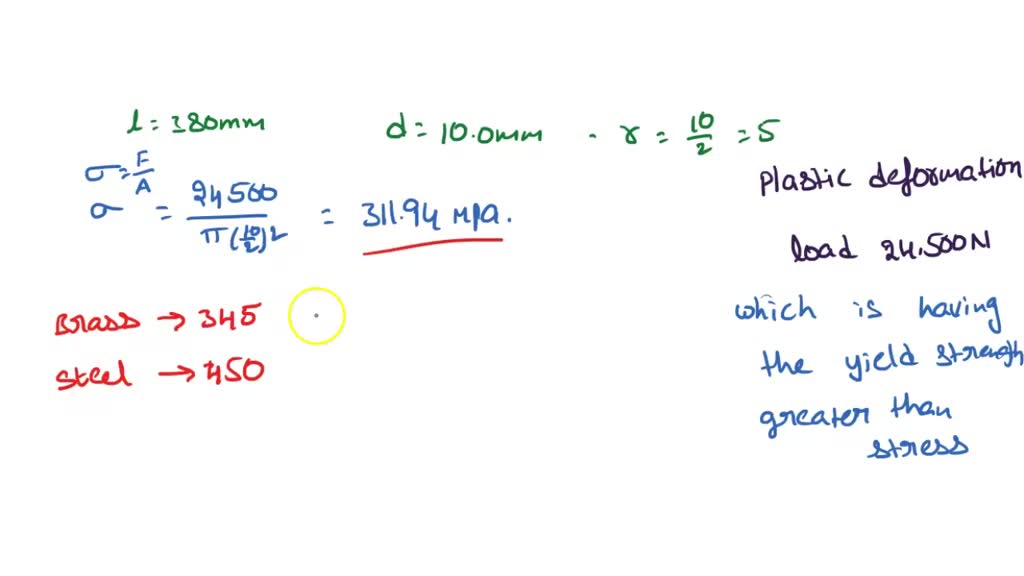 l = 380mm
d = 10.0mm - r = 10/2 = 5
σ = F/A
σ = 24500/π(10/2)2 = 311.94 Mpa.
Plastic deformation
load 24.500N
Brass → 345
steel → 450
which is having
the yield strength
greater than
stress